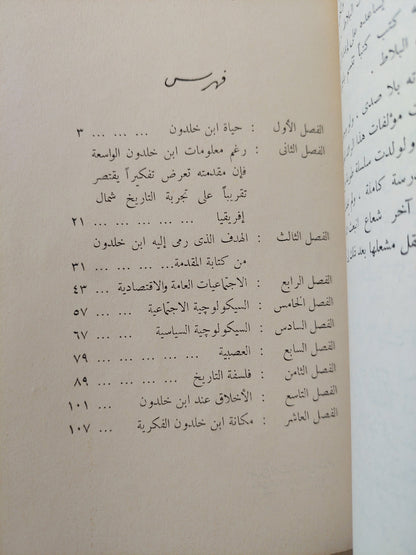 فهرس
الفصل الأول : حياة ابن خلدون ... ... ... ٣
الفصل الثاني : رغم معلومات ابن خلدون الواسعة
فإن مقدمته تعرض تفكيرًا يقتصر
تقريباً على تجربة التاريخ شمال
إفريقيا ... ... ... ... ... ٢١
الفصل الثالث : الهدف الذى رمى إليه ابن خلدون
من كتابة المقدمة... ... ... ٣١
الفصل الرابع : الاجتماعيات العامة والاقتصادية ... ٤٣
الفصل الخامس : السيكولوچية الاجتماعية ... ... ٥٧
الفصل السادس : السيكولوچية السياسية ... ... ٦٧
الفصل السابع : العصبية ... ... ... ... ٧٩
الفصل الثامن : فلسفة التاريخ ... ... ... ٨٩
الفصل التاسع : الأخلاق عند ابن خلدون ... ١٠١
الفصل العاشر : مكانة ابن خلدون الفكرية ... ١٠٧
كتب كتبًا
البلاط.
بلا صدى ،
مؤلفات هذا
ولولدت سلسلة
مدرسة كاملة ،
آخر شعاع
مشعلها بعد